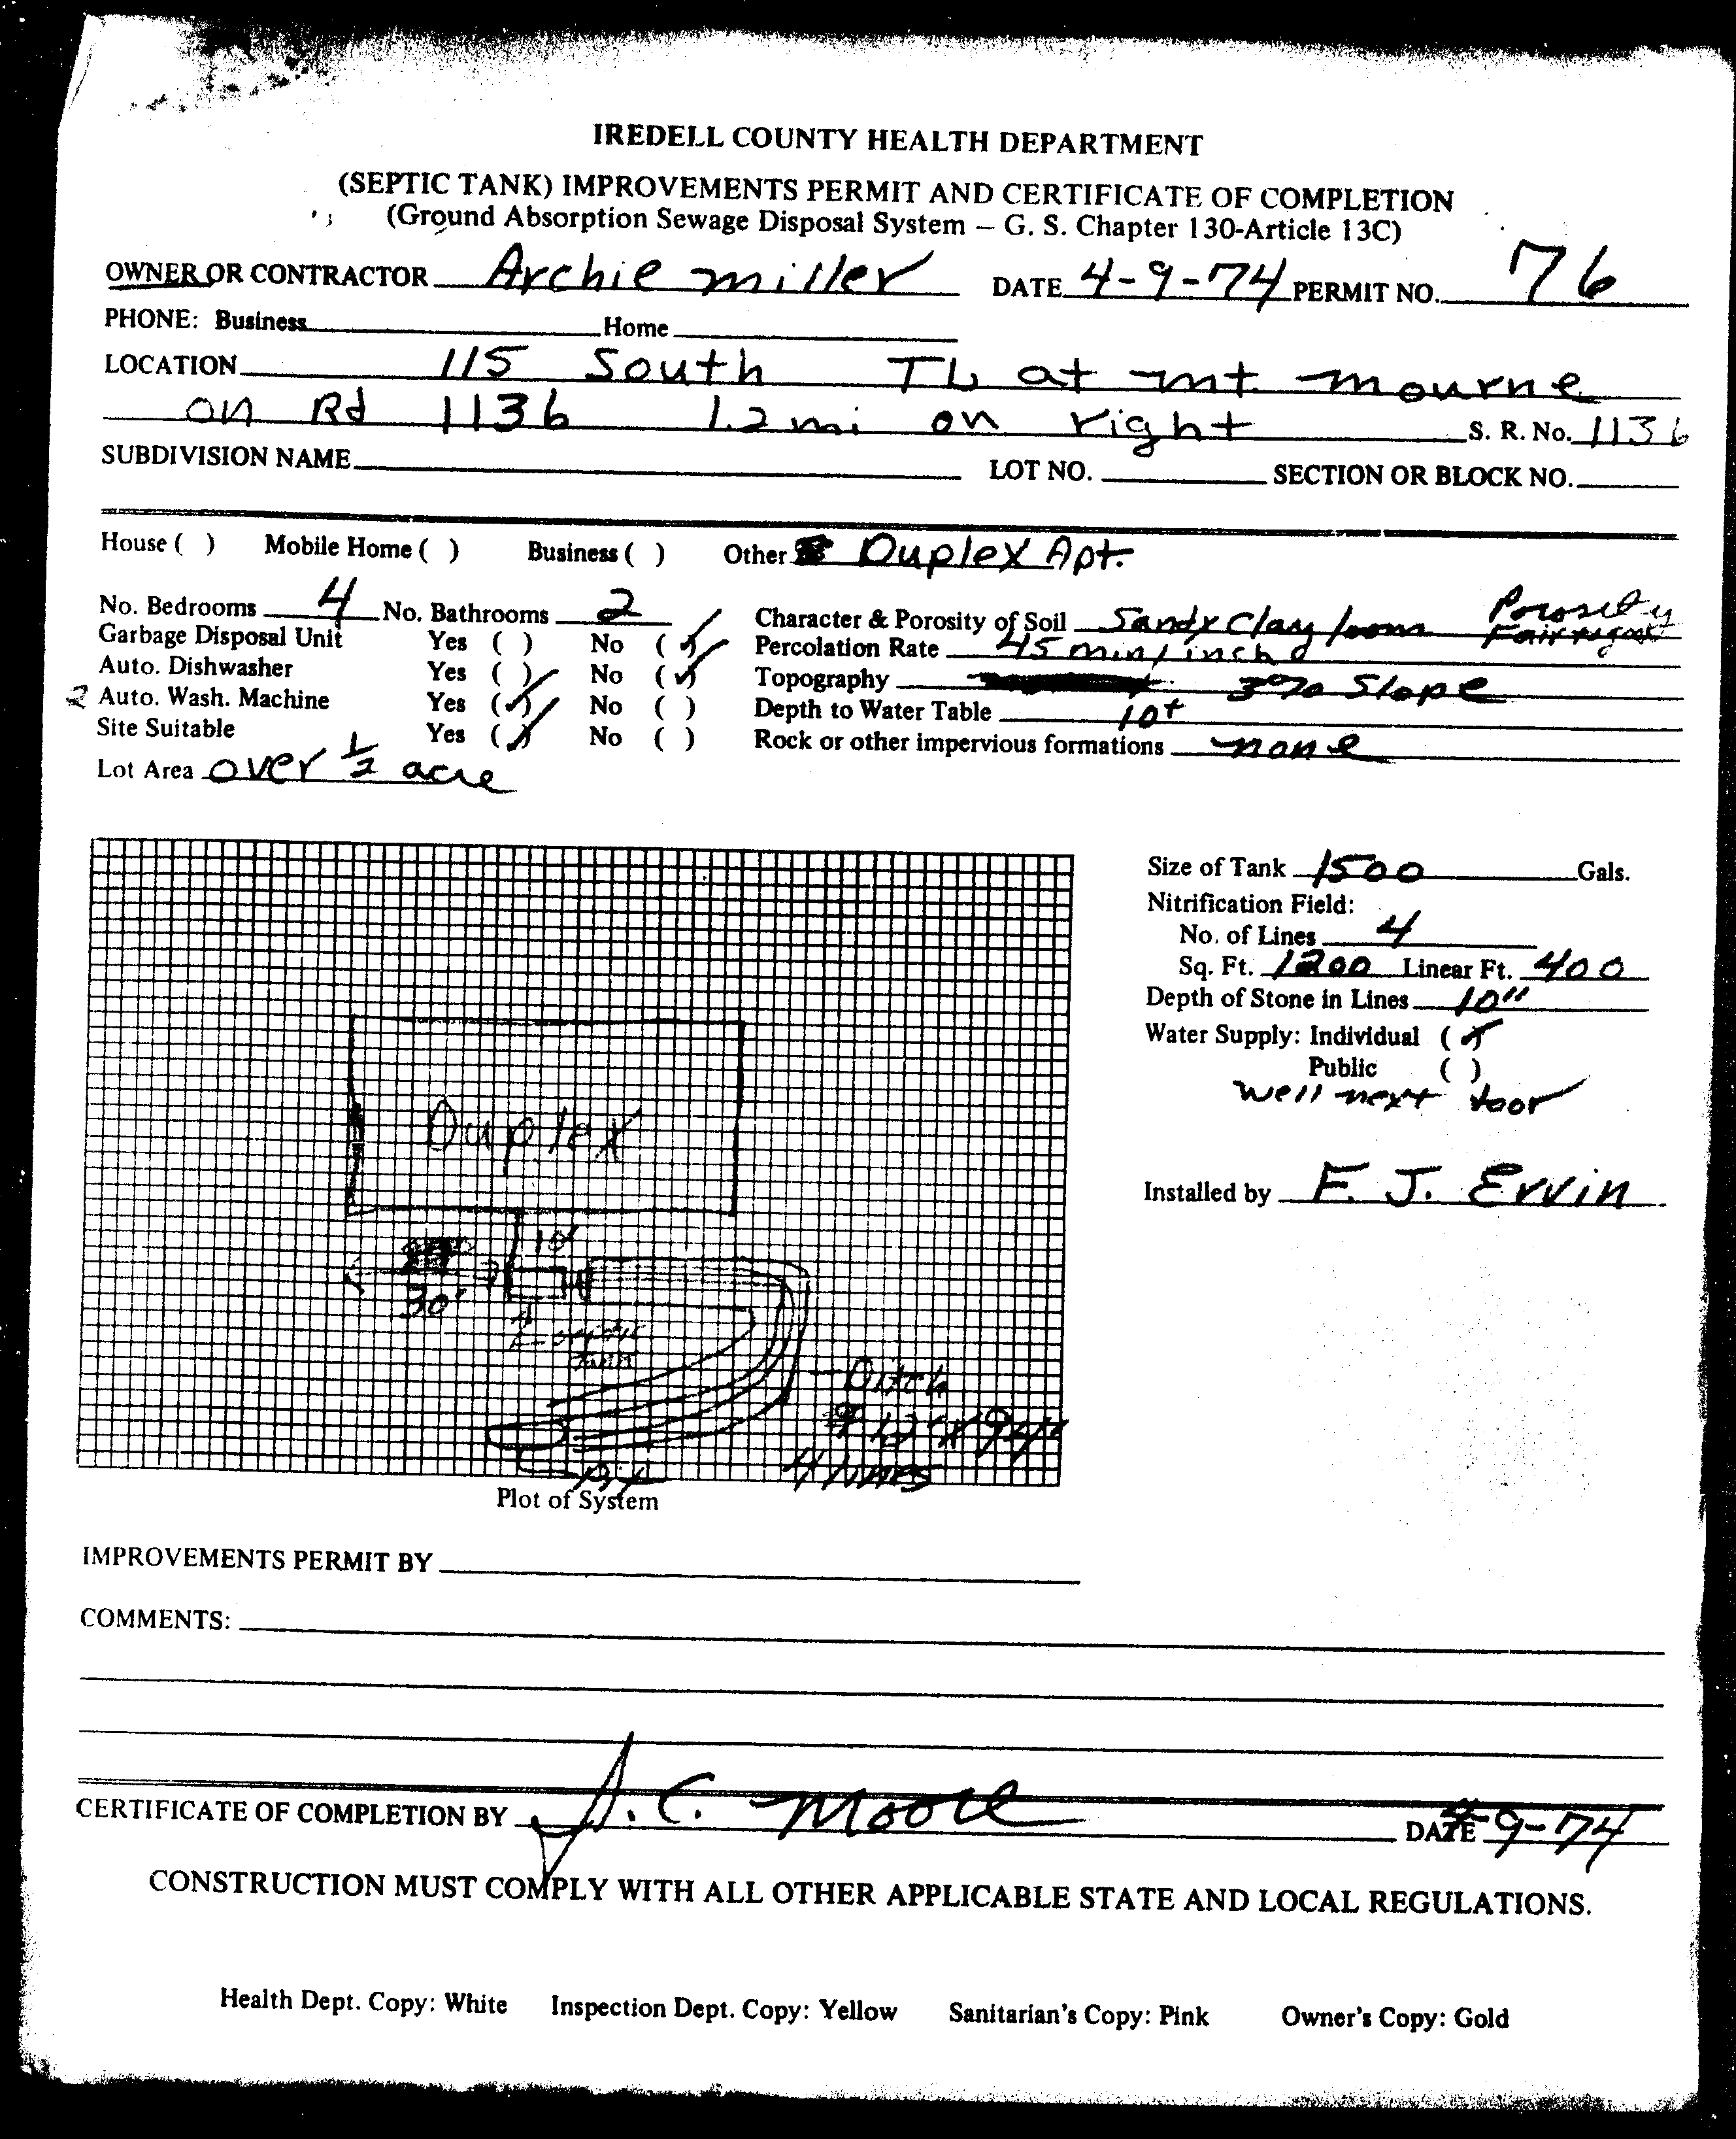 IREDELL COUNTY HEALTH DEPARTMENT
(SEPTIC TANK) IMPROVEMENTS PERMIT AND CERTIFICATE OF COMPLETION
(Ground Absorption Sewage Disposal System – G. S. Chapter 130-Article 13C)
OWNER OR CONTRACTOR Archie miller DATE 4-9-74 PERMIT NO. 76
PHONE: Business Home
LOCATION 115 South TL at mt. mourne
on Rd 1136 1.2 mi on right S. R. No. 1136
SUBDIVISION NAME LOT NO. SECTION OR BLOCK NO.
House ( ) Mobile Home ( ) Business ( ) Other Duplex Apt.
No. Bedrooms 4 No. Bathrooms 2 Character & Porosity of Soil Sandy Clay loam Porosity
Garbage Disposal Unit Yes ( ) No (✓) Percolation Rate 45 min/inch
Auto. Dishwasher Yes ( ) No (✓) Topography 3% Slope
2 Auto. Wash. Machine Yes (✓) No ( ) Depth to Water Table 10+
Site Suitable Yes (✓) No ( ) Rock or other impervious formations none
Lot Area over ½ acre
Size of Tank 1500 Gals.
Nitrification Field:
No. of Lines 4
Sq. Ft. 1200 Linear Ft. 400
Depth of Stone in Lines 10"
Water Supply: Individual (✓)
Public ( )
well next door
Installed by F. J. Ervin
Duplex
10'
30'
septic
Ditch
4 lines
Plot of System
IMPROVEMENTS PERMIT BY
COMMENTS:
CERTIFICATE OF COMPLETION BY J. C. Moore DATE 4-9-74
CONSTRUCTION MUST COMPLY WITH ALL OTHER APPLICABLE STATE AND LOCAL REGULATIONS.
Health Dept. Copy: White Inspection Dept. Copy: Yellow Sanitarian's Copy: Pink Owner's Copy: Gold